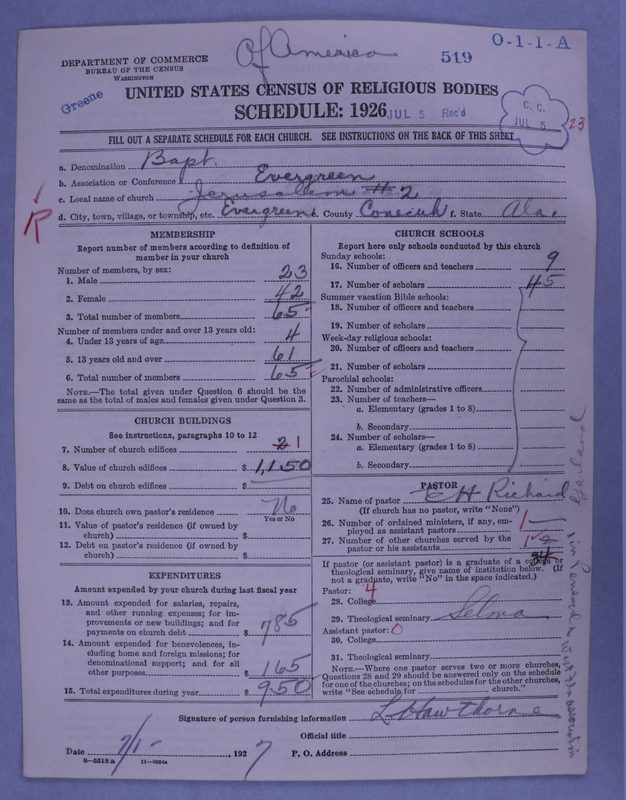 of America
519
O-1-1-A
DEPARTMENT OF COMMERCE
BUREAU OF THE CENSUS
WASHINGTON
Greene
UNITED STATES CENSUS OF RELIGIOUS BODIES
SCHEDULE: 1926
JUL 5 Rec'd
C. C.
JUL 5
23
FILL OUT A SEPARATE SCHEDULE FOR EACH CHURCH. SEE INSTRUCTIONS ON THE BACK OF THIS SHEET
a. Denomination Bapt.
b. Association or Conference Evergreen
c. Local name of church Jerusalem #2
R
d. City, town, village, or township, etc. Evergreen County Conecuh f. State Ala.
MEMBERSHIP
Report number of members according to definition of member in your church
Number of members, by sex:
1. Male 23
2. Female 42
3. Total number of members 65
Number of members under and over 13 years old:
4. Under 13 years of age 4
5. 13 years old and over 61
6. Total number of members 65
NOTE.—The total given under Question 6 should be the same as the total of males and females given under Question 3.
CHURCH BUILDINGS
See instructions, paragraphs 10 to 12
7. Number of church edifices 2 1
8. Value of church edifices $ 1,150
9. Debt on church edifices $
10. Does church own pastor's residence No
Yes or No
11. Value of pastor's residence (if owned by church) $
12. Debt on pastor's residence (if owned by church) $
EXPENDITURES
Amount expended by your church during last fiscal year
13. Amount expended for salaries, repairs, and other running expenses; for improvements or new buildings; and for payments on church debt $ 785
14. Amount expended for benevolences, including home and foreign missions; for denominational support; and for all other purposes $ 165
15. Total expenditures during year $ 950
CHURCH SCHOOLS
Report here only schools conducted by this church
Sunday schools:
16. Number of officers and teachers 9
17. Number of scholars 45
Summer vacation Bible schools:
18. Number of officers and teachers
19. Number of scholars
Week-day religious schools:
20. Number of officers and teachers
21. Number of scholars
Parochial schools:
22. Number of administrative officers
23. Number of teachers—
a. Elementary (grades 1 to 8)
b. Secondary
24. Number of scholars—
a. Elementary (grades 1 to 8)
b. Secondary
PASTOR
25. Name of pastor E H Richard
(If church has no pastor, write "None")
26. Number of ordained ministers, if any, employed as assistant pastors 1
27. Number of other churches served by the pastor or his assistants 1
34
If pastor (or assistant pastor) is a graduate of a college or theological seminary, give name of institution below. (If not a graduate, write "No" in the space indicated.)
Pastor: 4
28. College
29. Theological seminary Selma
Assistant pastor: 0
30. College
31. Theological seminary
NOTE.—Where one pastor serves two or more churches, Questions 28 and 29 should be answered only on the schedule for one of the churches; on the schedules for the other churches, write "See schedule for church."
Garland
Signature of person furnishing information L. Hawthorne
Official title
Date 7/1- , 1927 P. O. Address
8-5518 a 11-9024a